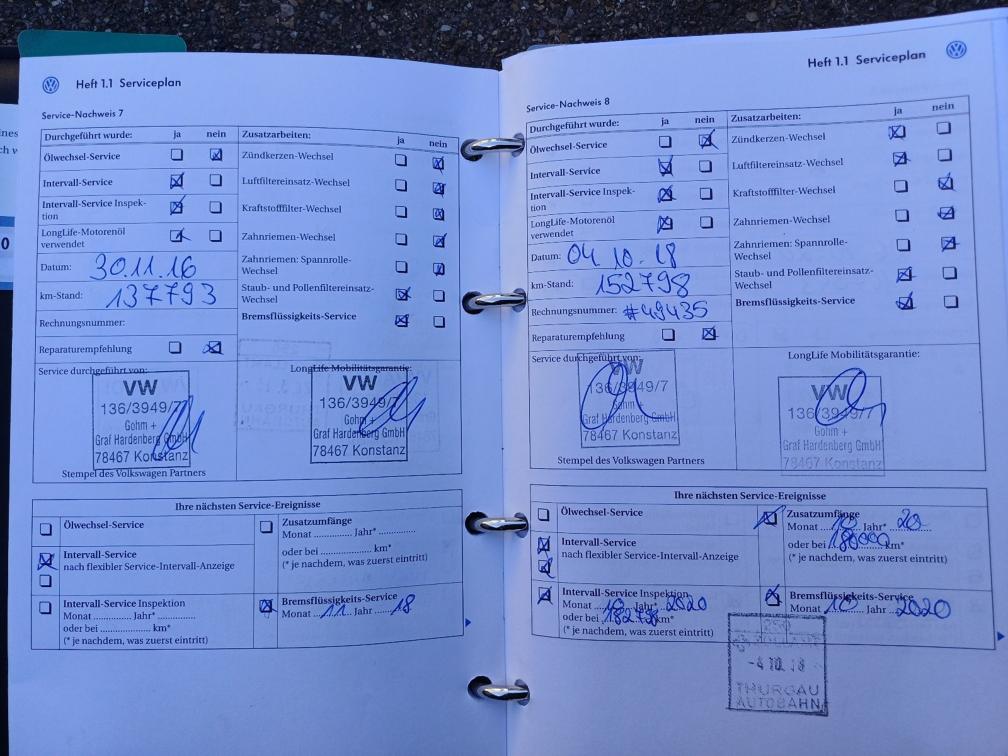 Heft 1.1 Serviceplan
Service-Nachweis 7
Durchgeführt wurde: ja nein
Ölwechsel-Service
Intervall-Service
Intervall-Service Inspek-
tion
LongLife-Motorenöl
verwendet
Datum: 30.11.16
km-Stand: 137793
Rechnungsnummer:
Reparaturempfehlung
Zusatzarbeiten: ja nein
Zündkerzen-Wechsel
Luftfiltereinsatz-Wechsel
Kraftstofffilter-Wechsel
Zahnriemen-Wechsel
Zahnriemen: Spannrolle-
Wechsel
Staub- und Pollenfiltereinsatz-
Wechsel
Bremsflüssigkeits-Service
Service durchgeführt von:
VW
136/3949/7
Gohm +
Graf Hardenberg GmbH
78467 Konstanz
Stempel des Volkswagen Partners
LongLife Mobilitätsgarantie:
VW
136/3949/7
Gohm +
Graf Hardenberg GmbH
78467 Konstanz
Ihre nächsten Service-Ereignisse
Ölwechsel-Service
Intervall-Service
nach flexibler Service-Intervall-Anzeige
Intervall-Service Inspektion
Monat .......... Jahr* ..........
oder bei .......... km*
(* je nachdem, was zuerst eintritt)
Zusatzumfänge
Monat .......... Jahr* ..........
oder bei .......... km*
(* je nachdem, was zuerst eintritt)
Bremsflüssigkeits-Service
Monat 11 Jahr 18
Heft 1.1 Serviceplan
Service-Nachweis 8
Durchgeführt wurde: ja nein
Ölwechsel-Service
Intervall-Service
Intervall-Service Inspek-
tion
LongLife-Motorenöl
verwendet
Datum: 04.10.18
km-Stand: 152798
Rechnungsnummer: #49435
Reparaturempfehlung
Zusatzarbeiten: ja nein
Zündkerzen-Wechsel
Luftfiltereinsatz-Wechsel
Kraftstofffilter-Wechsel
Zahnriemen-Wechsel
Zahnriemen: Spannrolle-
Wechsel
Staub- und Pollenfiltereinsatz-
Wechsel
Bremsflüssigkeits-Service
Service durchgeführt von:
VW
136/3949/7
Gohm +
Graf Hardenberg GmbH
78467 Konstanz
Stempel des Volkswagen Partners
LongLife Mobilitätsgarantie:
VW
136/3949/7
Gohm +
Graf Hardenberg GmbH
78467 Konstanz
Ihre nächsten Service-Ereignisse
Ölwechsel-Service
Intervall-Service
nach flexibler Service-Intervall-Anzeige
Intervall-Service Inspektion
Monat 10 Jahr* 2020
oder bei 182798 km*
(* je nachdem, was zuerst eintritt)
Zusatzumfänge
Monat 10 Jahr* 20
oder bei 180000 km*
(* je nachdem, was zuerst eintritt)
Bremsflüssigkeits-Service
Monat 10 Jahr 2020
THURGAU
AUTOBAHN